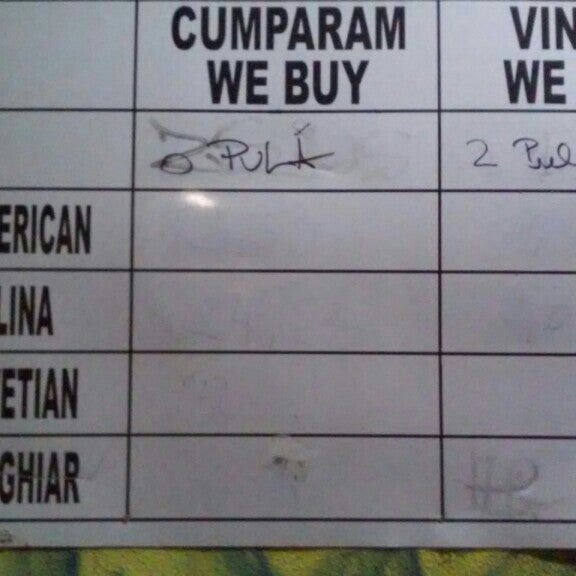 CUMPARAM VIN
WE BUY WE
O PULĂ 2 Pul
ERICAN
LINA
ETIAN
GHIAR